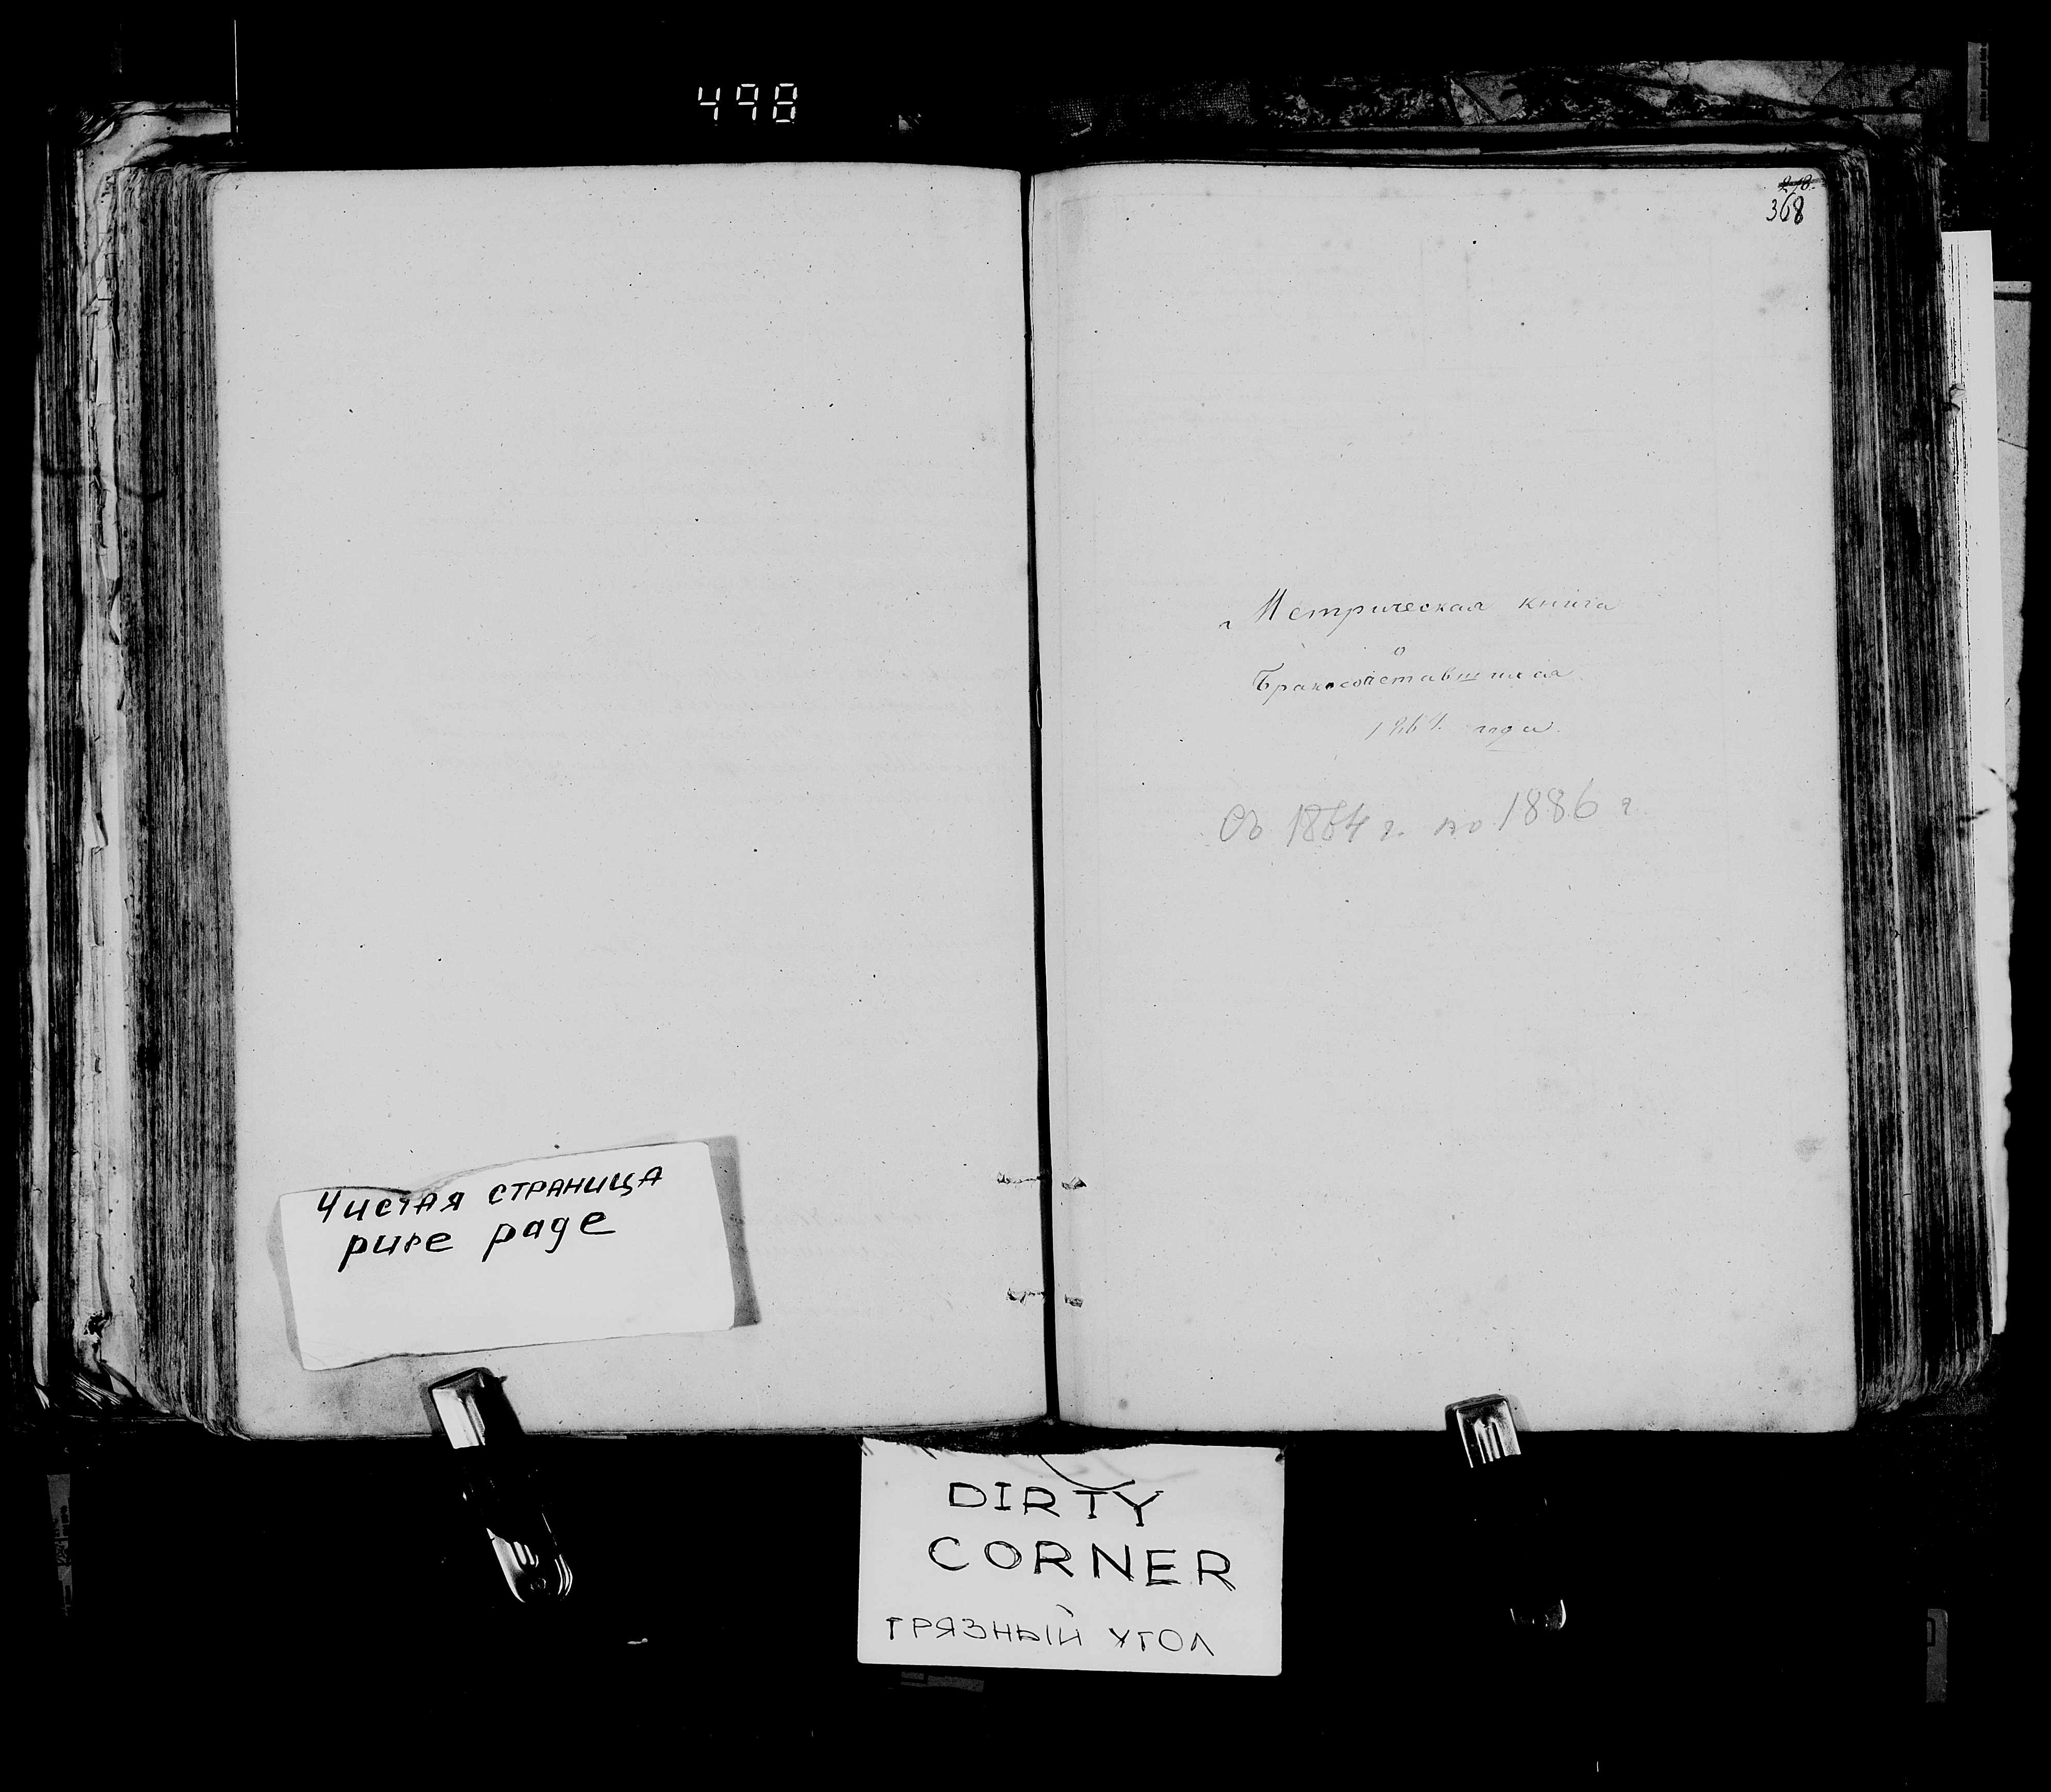 498
368
Метрическая книга
о
года
Съ 1864 г. по 1886 г
Чистая страница
pure page
DIRTY
CORNER
грязный угол